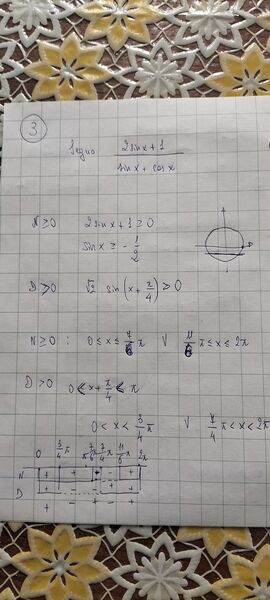 3
Segno 2sinx+1 / sinx+cosx
N≥0 2sinx+1≥0
sinx≥-1/2
D>0 √2 sin(x+π/4)>0
N≥0: 0≤x≤7/6π V 11/6π≤x≤2π
D>0 0<x+π/4<π
0<x<3/4π V 7/4π<x<2π
0 3/4π 7/6π 7/4π 11/6π 2π
N + + - - +
D + - - + +
+ - + - +